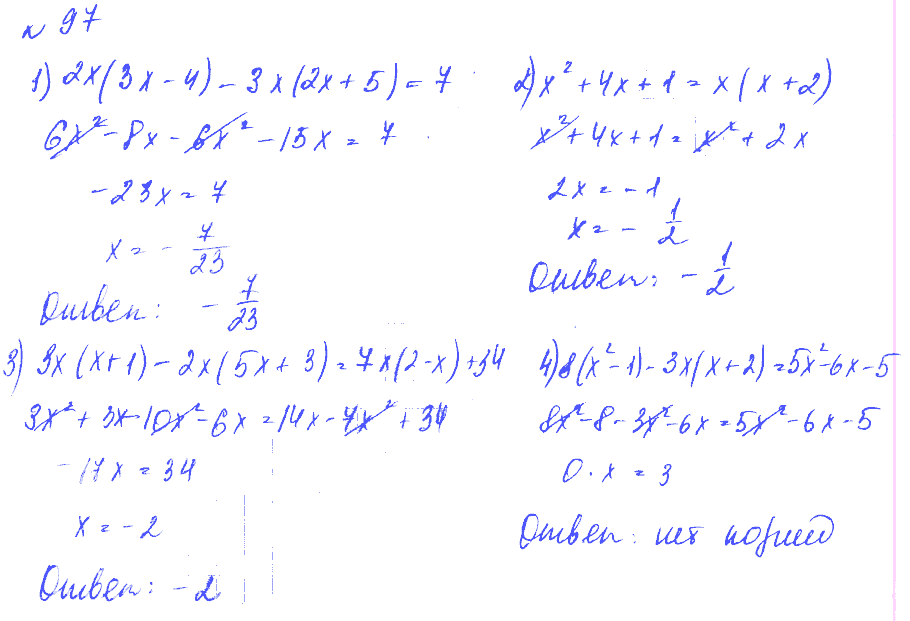 № 97
1) 2x(3x - 4) - 3x(2x + 5) = 7
6x² - 8x - 6x² - 15x = 7
-23x = 7
x = - 7/23
Ответ: - 7/23
2) x² + 4x + 1 = x(x + 2)
x² + 4x + 1 = x² + 2x
2x = -1
x = - 1/2
Ответ: - 1/2
3) 3x(x + 1) - 2x(5x + 3) = 7x(2 - x) + 34
3x² + 3x - 10x² - 6x = 14x - 7x² + 34
-17x = 34
x = -2
Ответ: -2
4) 8(x² - 1) - 3x(x + 2) = 5x² - 6x - 5
8x² - 8 - 3x² - 6x = 5x² - 6x - 5
0 · x = 3
Ответ: нет корней